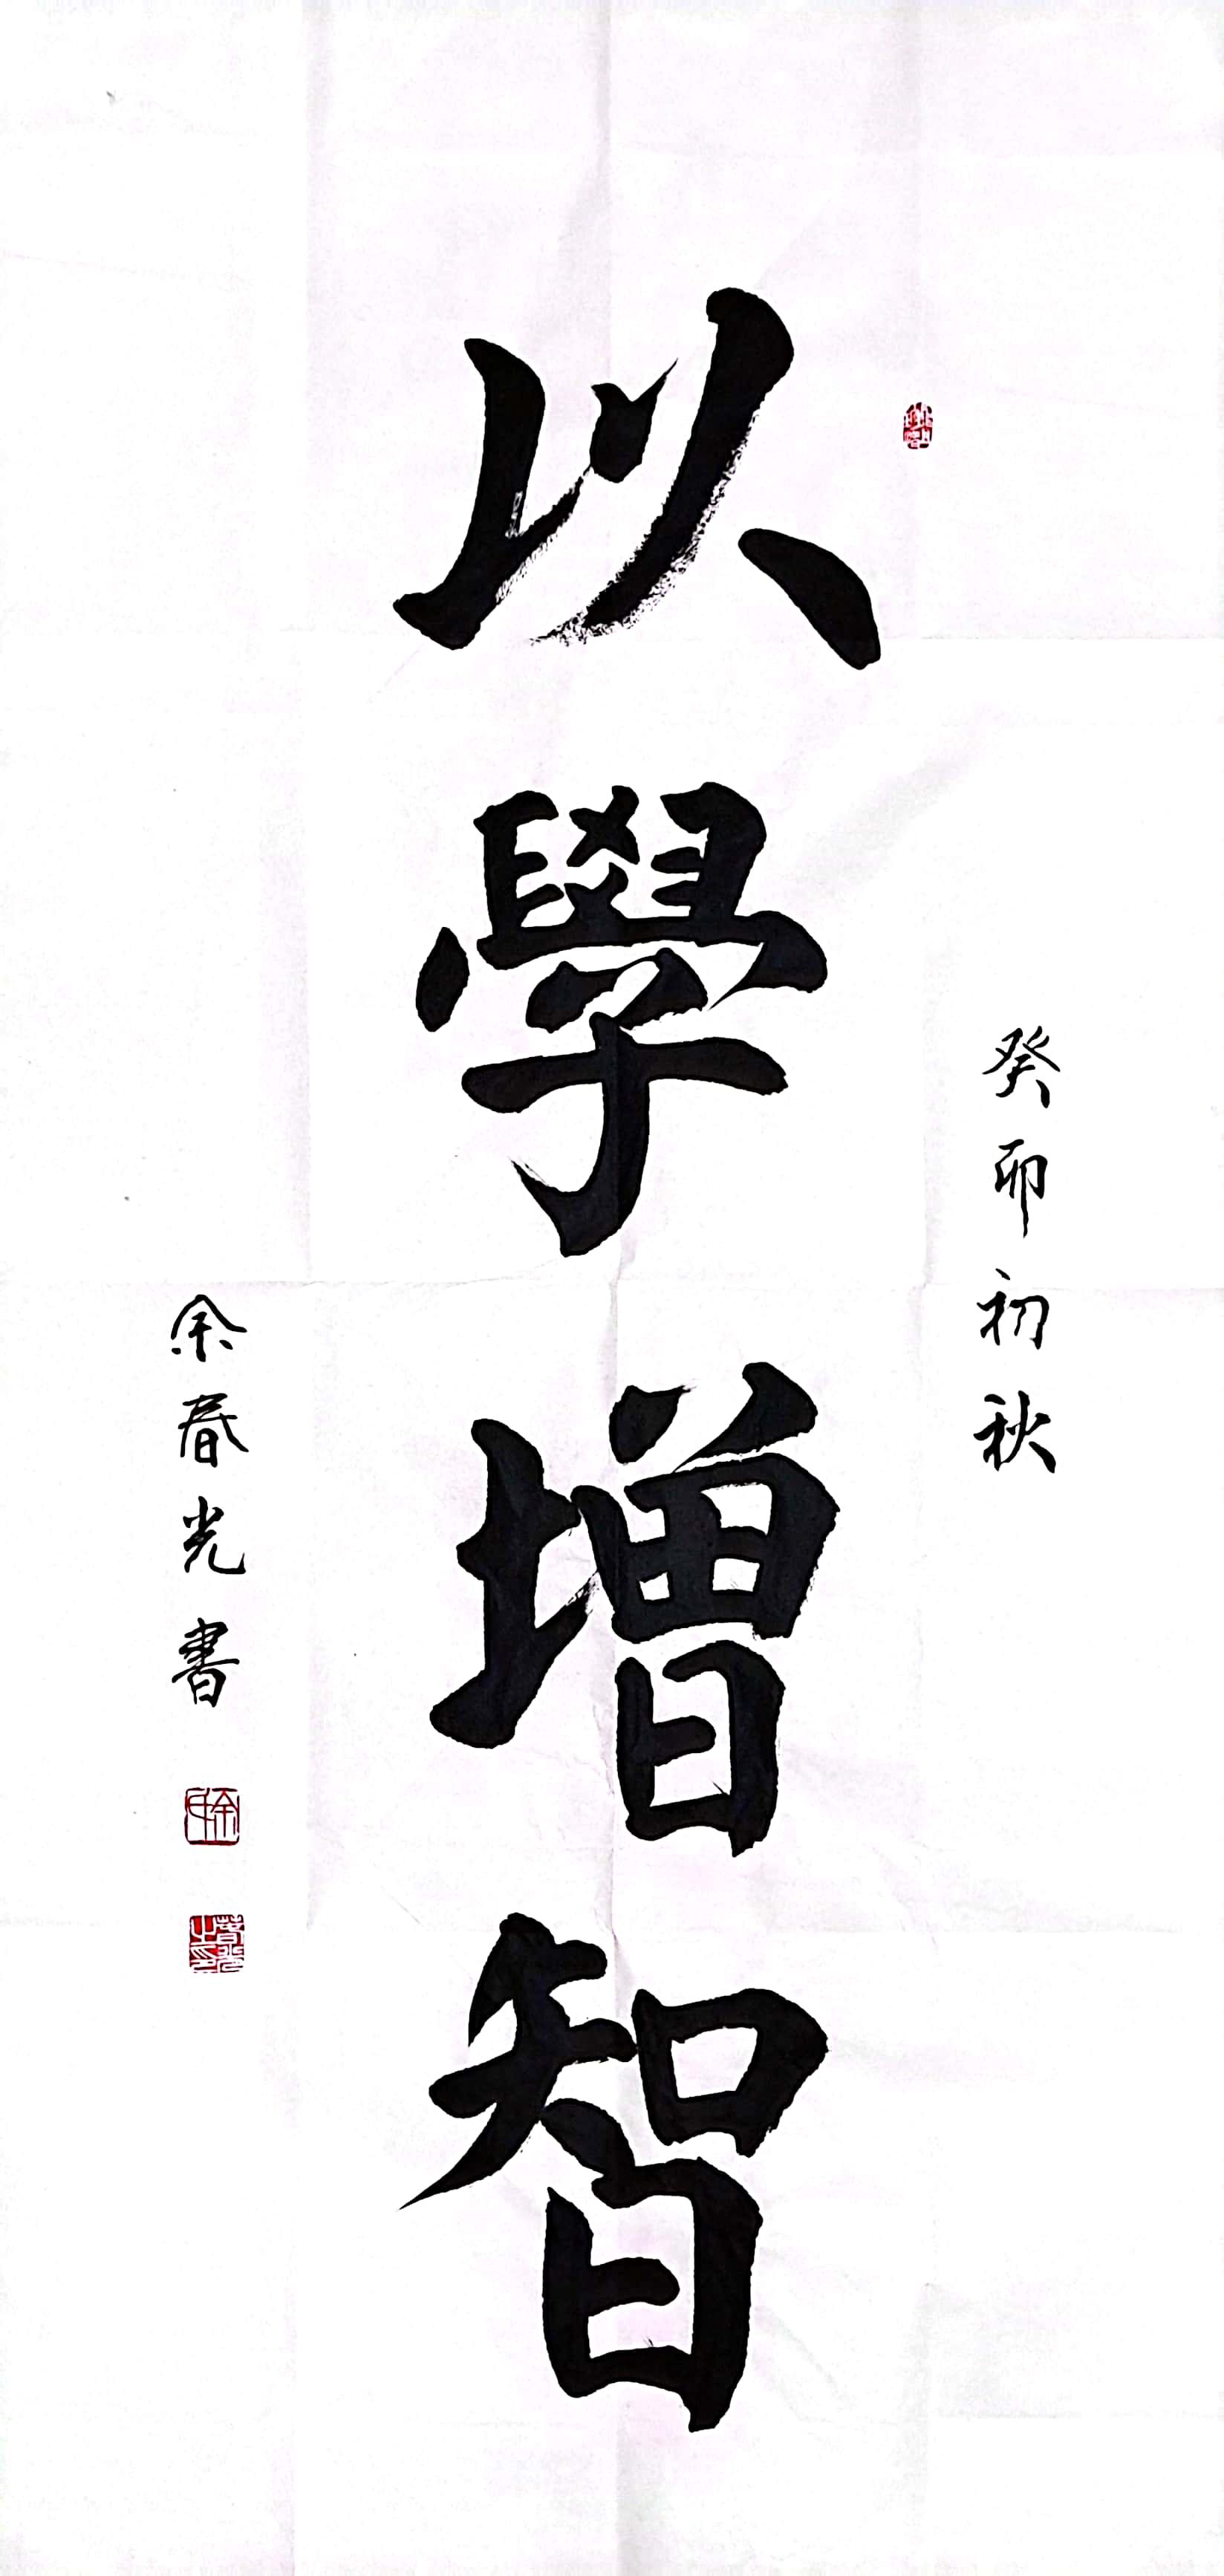 癸卯初秋
以學增智
余春光書